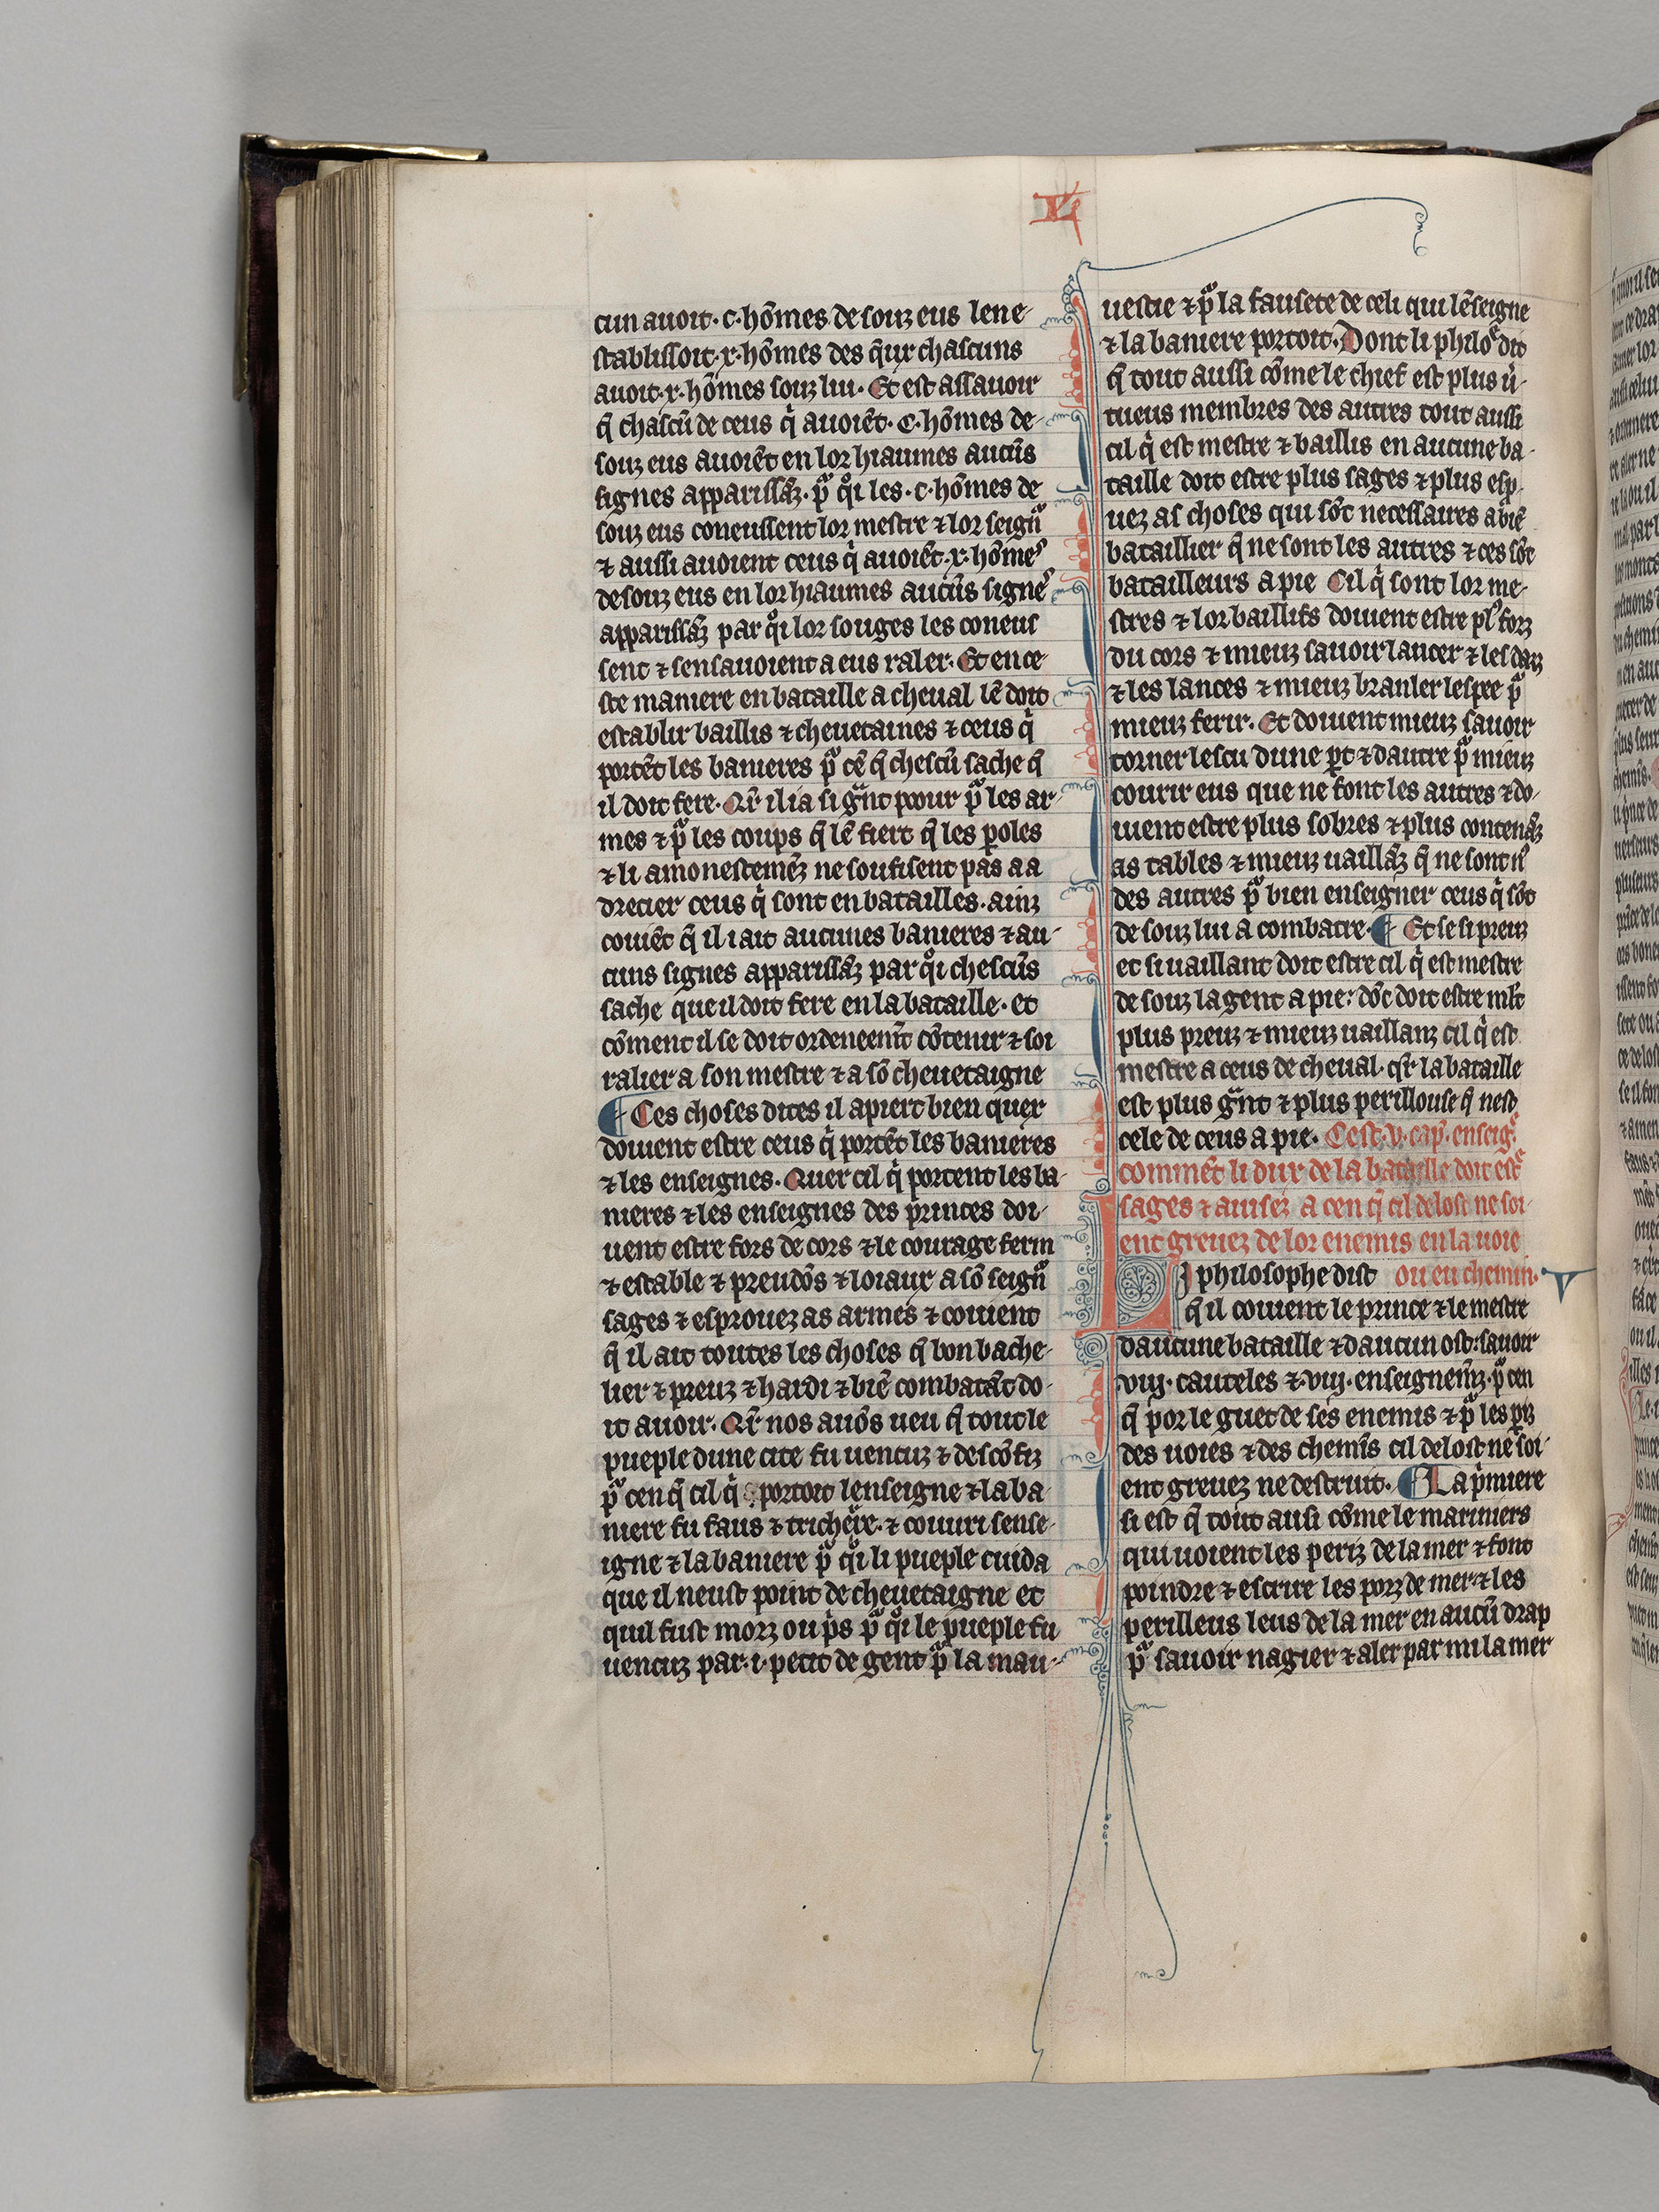 V
cun auoit · c · hõmes de souz eus len e-
stablissoit · x · hõmes des q̃ux chascuns
auoit · x · hõmes souz lui · Et est assauoir
q̃ chascũ de ceus q̇ auoiẽt · c · hõmes de-
souz eus auoiẽt en lor hiaumes aucũs
signes apparissãz · pͬ qͦi les · c · hõmes de
souz eus coneussent lor mestre ⁊ lor seignͬ
⁊ aussi auoient ceus q̇ auoiẽt · x · hõmes
desouz eus en lor hiaumes aucũs signes
apparissãz par qͦi lor souges les coneus
sent ⁊ sensauoient a eus raler · Et en ce-
ste maniere en bataille a cheual lẽ doit
establir baillis ⁊ cheuetaines ⁊ ceus q̇
portẽt les banieres pͬ cẽ q̃ chescũ sache q̃
il doit fere · Qr̃ il i a si g̃nt poour pͬ les ar-
mes ⁊ pͬ les coups q̃ lẽ fiert q̃ les ꝑoles
⁊ li amonestemẽz ne soufisent pas a a
drecier ceus q̇ sont en batailles · ainz
couiẽt q̃ il i ait aucunes banieres ⁊ au-
cuns signes apparissãz par qͦi chescũs
sache que il doit fere en la bataille · et
cõment il se doit ordeneem̃t cõtenir ⁊ soi
ralier a son mestre ⁊ a sõ cheuetaigne
¶ Ces choses dites il apiert bien quex
doiuent estre ceus q̇ portẽt les banieres
⁊ les enseignes · Quer cil q̇ portent les ba-
nieres ⁊ les enseignes des princes doi-
uent estre fors de cors ⁊ le courage ferm
⁊ estable ⁊ preudõs ⁊ loiaux a sõ seignͬ
sages ⁊ esprouez as armes ⁊ couient
q̃ il ait toutes les choses q̃ bon bache-
lier ⁊ preuz ⁊ hardi ⁊ biẽ combatãt do-
it auoir · Qr̃ nos auõs ueu q̃ tout le
pueple dune cite fu uencuz ⁊ descõfiz
pͬ cen q̃ cil q̇ portoit lenseigne ⁊ la ba
niere fu faus ⁊ tricherre · ⁊ couuri sense-
igne ⁊ la baniere pͬ qͦi li pueple cuida
que il neust point de cheuetaigne et
quil fust morz ou p̍s pͬ qͦi le pueple fu
uencuz par · i · petit de gent pͬ la mau-
uestie ⁊ pͬ la fausete de celi qui lẽseigne
⁊ la baniere portoit · Dont li philoᵉ dit
q̃ tout aussi cõme le chief est plus u̍-
tueus membres des autres tout aussi
cil q̇ est mestre ⁊ baillis en aucune ba-
taille doit estre plus sages ⁊ plus esp̱-
uez as choses qui sõt necessaires a biẽ
bataillier q̃ ne sont les autres ⁊ ces sõt
batailleurs a pie Cil q̇ sont lor me-
stres ⁊ lor baillifs doiuent estre plꝰ forz
du cors ⁊ mieuz sauoir lancer ⁊ les darz
⁊ les lances ⁊ mieuz branler lespee pͬ
mieuz ferir · Et doiuent mieuz sauoir
torner lescu dune ꝑt ⁊ dautre pͬ mieuz
courir eus que ne font les autres ⁊ do-
iuent estre plus sobres ⁊ plus contenãz
as tables ⁊ mieuz uaillãz q̃ ne sont nꝰ
des autres pͬ bien enseigner ceus q̇ sõt
de souz lui a combatre · ¶ Et se si preuz
et si uaillant doit estre cil q̇ est mestre
de souz la gent a pie : dõc doit estre ml̃t
plus preuz ⁊ mieuz uaillanz cil q̇ est
mestre a ceus de cheual · qr̃ la bataille
est plus g̃nt ⁊ plus perillouse q̃ nest
cele de ceus a pie · Cest · v · cap̃ · enseigᵉ
commẽt li dux de la bataille doit estᵉ
sages ⁊ auisez a cen q̃ cil de lost ne soi-
ent greuez de lor enemis en la uoie
ou eu chemin ·
LI philosophe dist
q̃ il couient le prince ⁊ le mestre
daucune bataille ⁊ daucun ost : sauoir
viij · cauteles ⁊ · viij · enseignem̃z · pͬ cen
q̃ por le guet de ses enemis ⁊ pͬ les ꝑiz
des uoies ⁊ des chemĩs cil de lost ne soi-
ent greuez ne destruit · ¶ La p̍miere
si est q̃ tout ausi cõme le mariniers
qui uoient les periz de la mer ⁊ font
poindre ⁊ escrire les porz de mer ⁊ les
perilleus leus de la mer en aucũ drap
pͬ sauoir nagier ⁊ aler par mi la mer